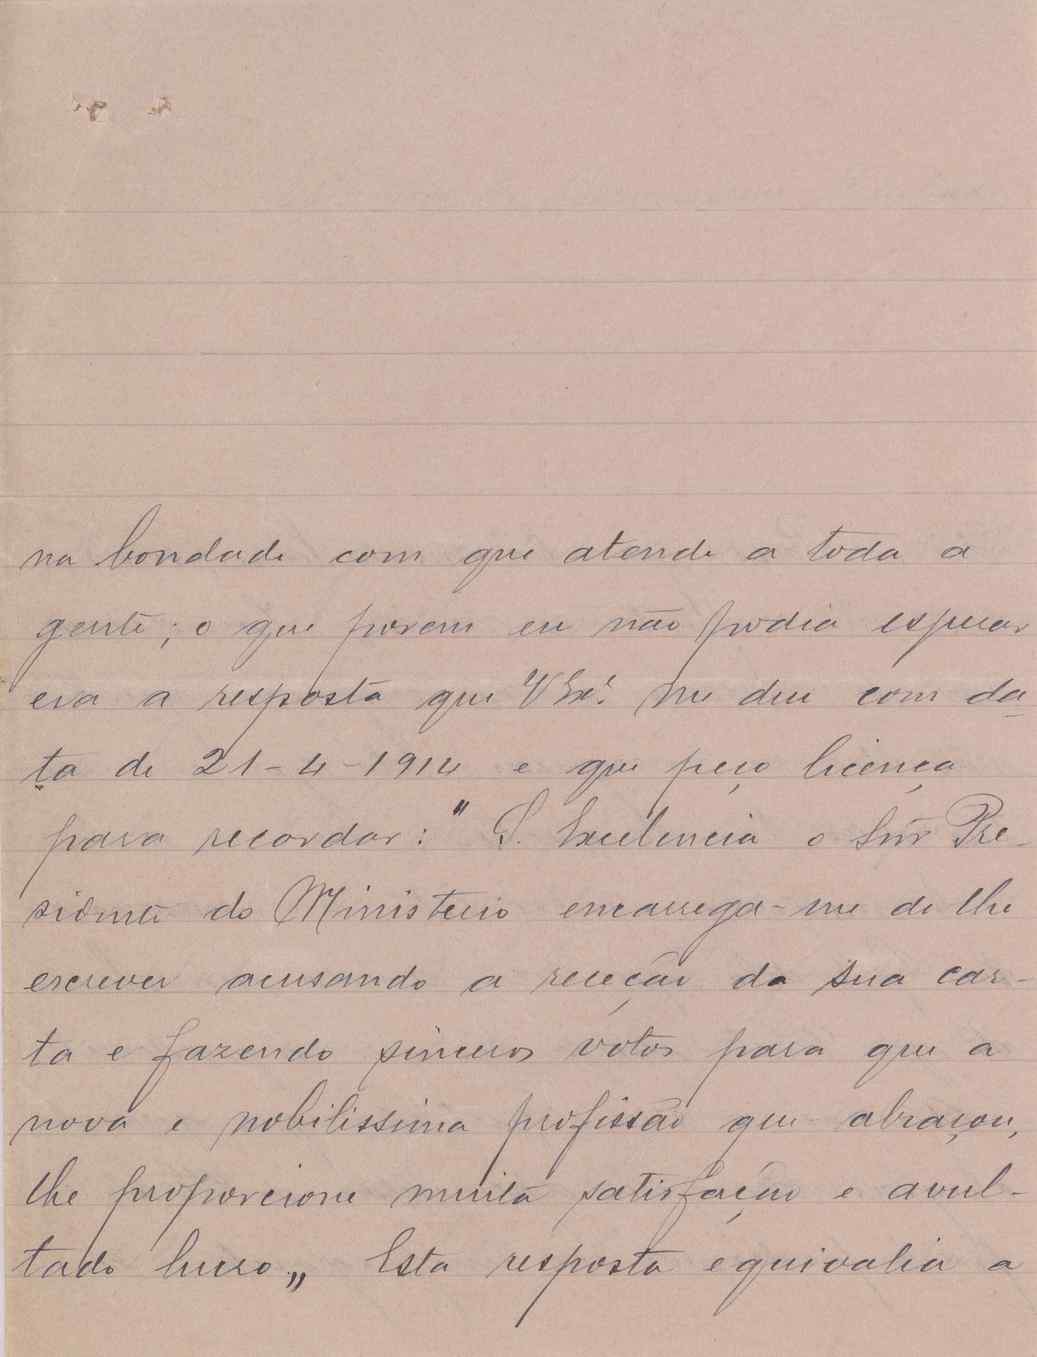 na bondade com que atende a toda a
gente; o que porem eu não podia esperar
era a resposta que V Exª. me deu com da-
ta de 21-4-1914 e que peço licença
para recordar: " S. Excelencia o Snr Pre-
sidente do Ministerio encarrega-me de lhe
escrever acusando a receção da sua car-
ta e fazendo sinceros votos para que a
nova e nobilissima profissão que abraçou,
lhe proporcione muita satisfação e avul-
tado lucro„ Esta resposta equivalia a